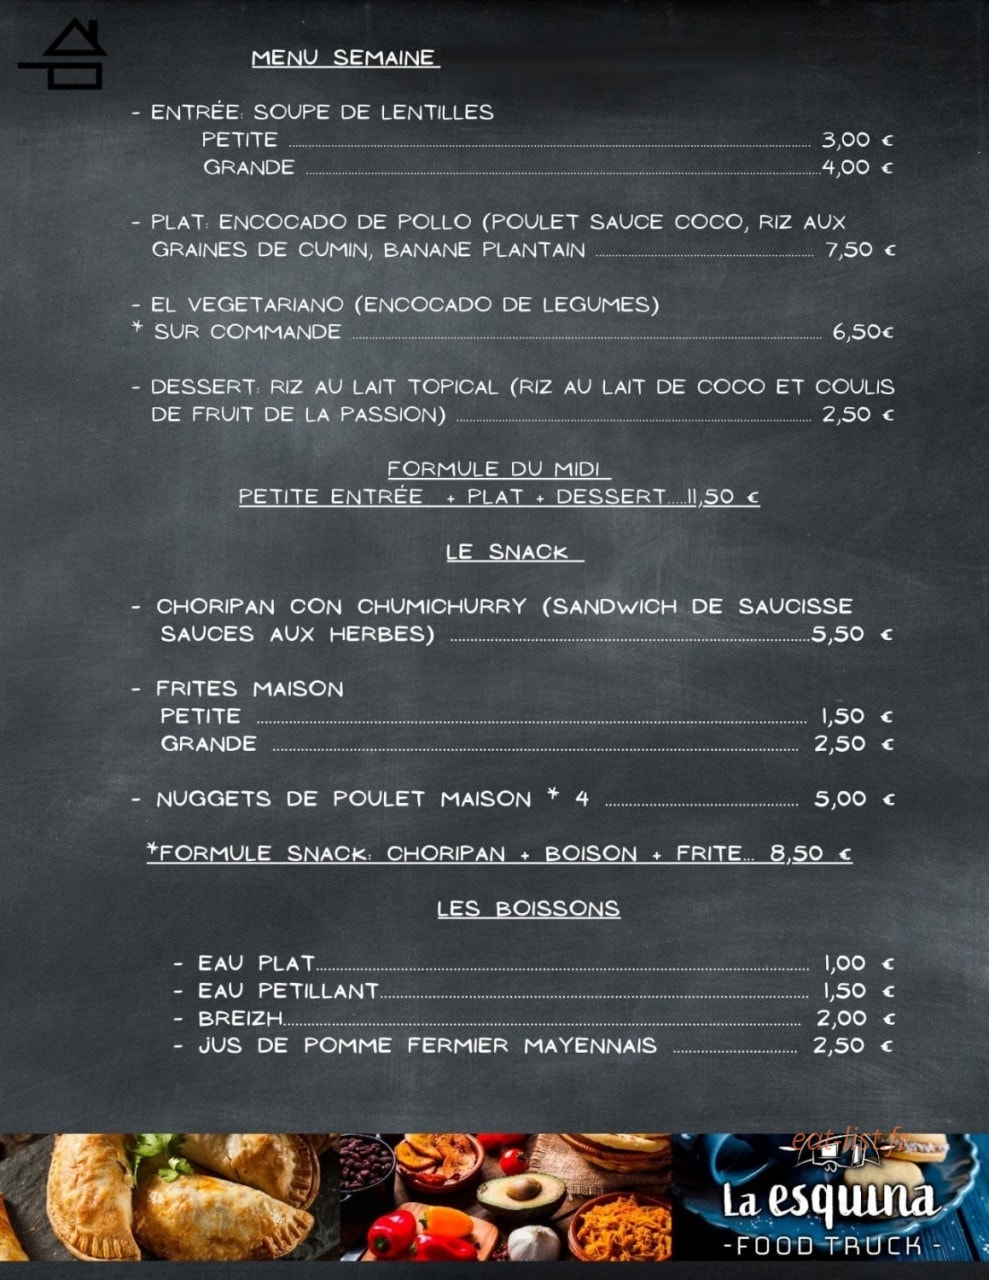 MENU SEMAINE
- ENTRÉE: SOUPE DE LENTILLES
PETITE ........ 3,00 €
GRANDE ........ 4,00 €
- PLAT: ENCOCADO DE POLLO (POULET SAUCE COCO, RIZ AUX
GRAINES DE CUMIN, BANANE PLANTAIN ........ 7,50 €
- EL VEGETARIANO (ENCOCADO DE LEGUMES)
* SUR COMMANDE ........ 6,50€
- DESSERT: RIZ AU LAIT TOPICAL (RIZ AU LAIT DE COCO ET COULIS
DE FRUIT DE LA PASSION) ........ 2,50 €
FORMULE DU MIDI
PETITE ENTRÉE + PLAT + DESSERT.....11,50 €
LE SNACK
- CHORIPAN CON CHUMICHURRY (SANDWICH DE SAUCISSE
SAUCES AUX HERBES) ........5,50 €
- FRITES MAISON
PETITE ........ 1,50 €
GRANDE ........ 2,50 €
- NUGGETS DE POULET MAISON * 4 ........ 5,00 €
*FORMULE SNACK: CHORIPAN + BOISON + FRITE... 8,50 €
LES BOISSONS
- EAU PLAT........ 1,00 €
- EAU PETILLANT........ 1,50 €
- BREIZH........ 2,00 €
- JUS DE POMME FERMIER MAYENNAIS ........ 2,50 €
eat-list.fr
La esquina
-FOOD TRUCK-